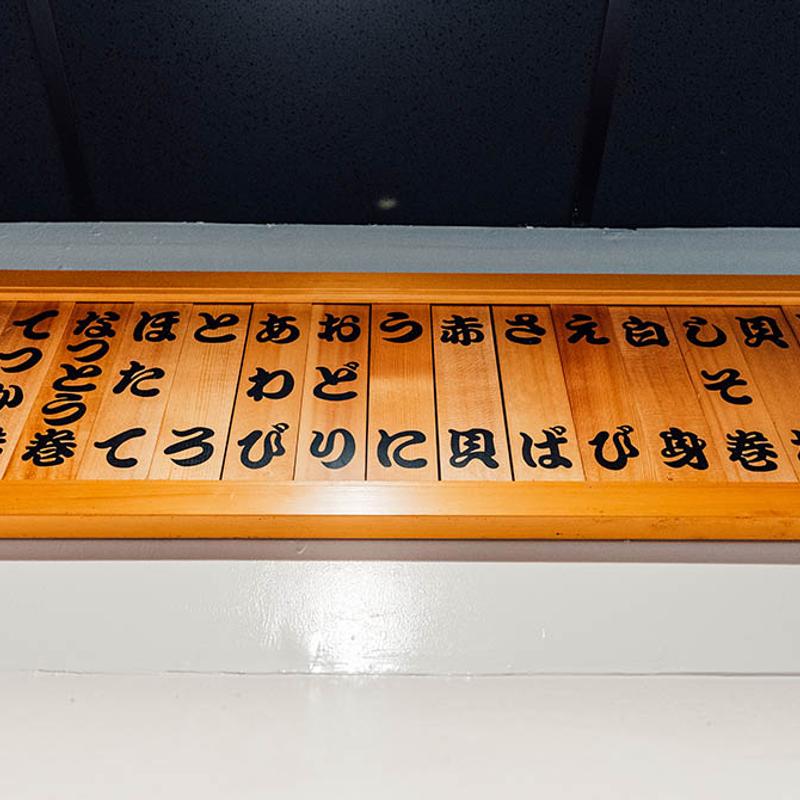 貝
しそ巻
白身
えび
さば
赤貝
うに
おどり
あわび
とろ
ほたて
なっとう巻
てっか